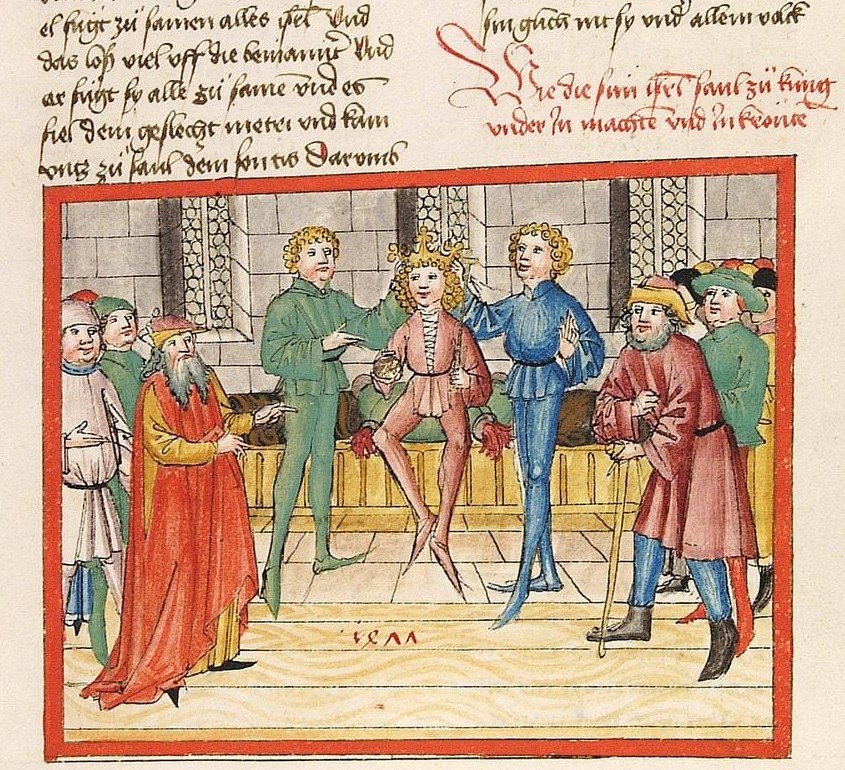 el fügt zü samen alles isrl Und
das loß viel uff die beniamiter Und
er fügt sy alle zü samē vnd es
fiel dem geslecht metri vnd kam
vntz zü saul dem son cis Darumb
sin güch mit sy vnd allem volck
Wie die sun isrl saul zü küng
vnder in machtē vnd in krönte